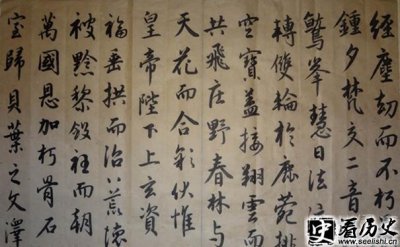 經塵劫而不朽
鍾夕梵交二音
鷲峯慧日法
轉雙輪於鹿菀排
空寶蓋接翔雲而
共飛庄野春林与
天花而合彩伏惟
皇帝陛下上玄資
福垂拱而治八荒德
被黔黎斂衽而朝
萬國恩加朽骨石
室歸貝葉之文澤
看历史
www.seelishi.cn